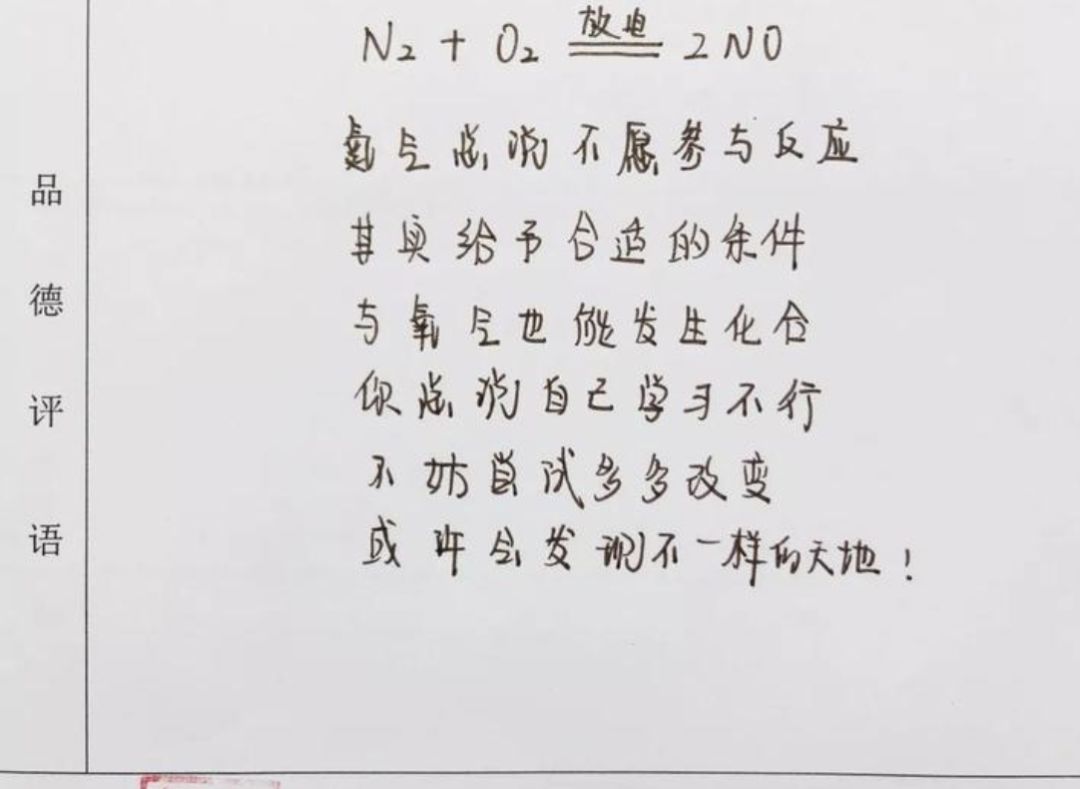 N₂ + O₂ 放电 2NO
氮气总说不愿参与反应
其实给予合适的条件
与氧气也能发生化合
你总说自己学习不行
不妨尝试多多改变
或许会发现不一样的天地！
品德评语